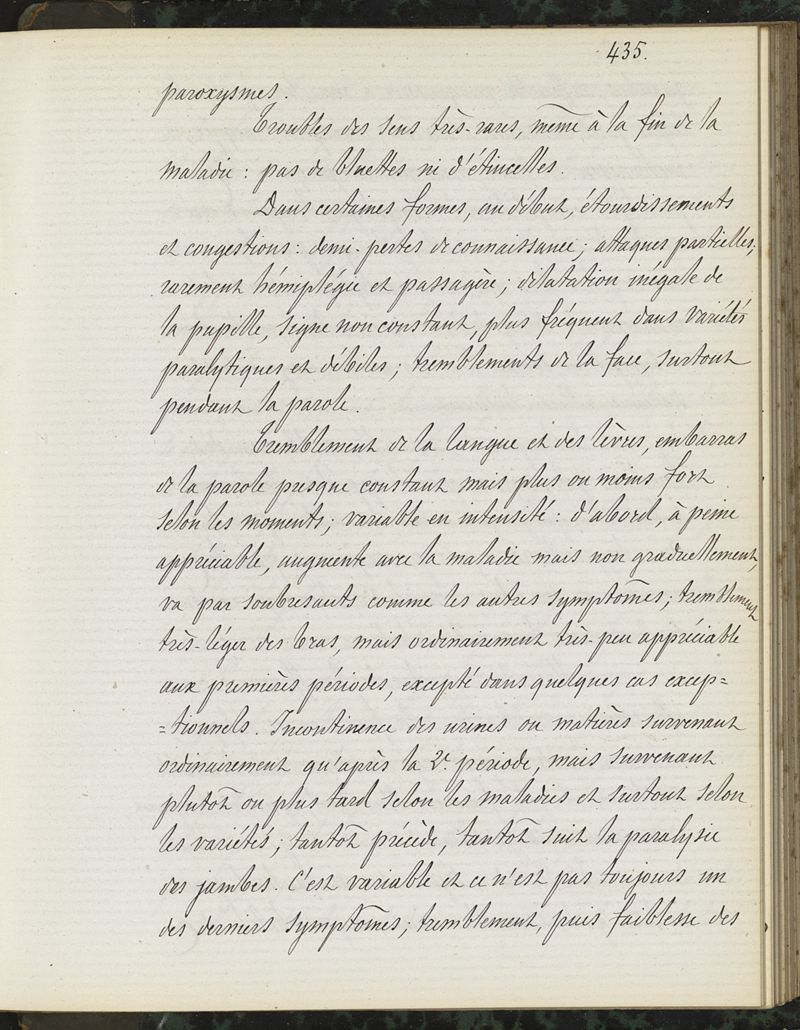 435.
paroxysmes.
Troubles des sens très-rares, même à la fin de la
maladie : pas de bluettes ni d'étincelles.
Dans certaines formes, au début, étourdissements
et congestions : demi-pertes de connaissance ; attaques partielles ;
rarement hémiplégie et passagère ; dilatation inégale de
la pupille, signe non constant, plus fréquent dans variétés
paralytiques et débiles ; tremblements de la face, surtout
pendant la parole.
Tremblement de la langue et des lèvres, embarras
de la parole presque constant mais plus ou moins fort
selon les moments ; variable en intensité : d'abord, à peine
appréciable, augmente avec la maladie mais non graduellement,
va par soubresauts comme les autres symptômes ; tremblement
très-léger des bras, mais ordinairement très-peu appréciable
aux premières périodes, excepté dans quelques cas excep=
=tionnels. Incontinence des urines ou matières survenant
ordinairement qu'après la 2e. période, mais survenant
plutôt ou plus tard selon les maladies et surtout selon
les variétés ; tantôt précède, tantôt suit la paralysie
des jambes. C'est variable et ce n'est pas toujours un
des derniers symptômes ; tremblement, puis faiblesse des